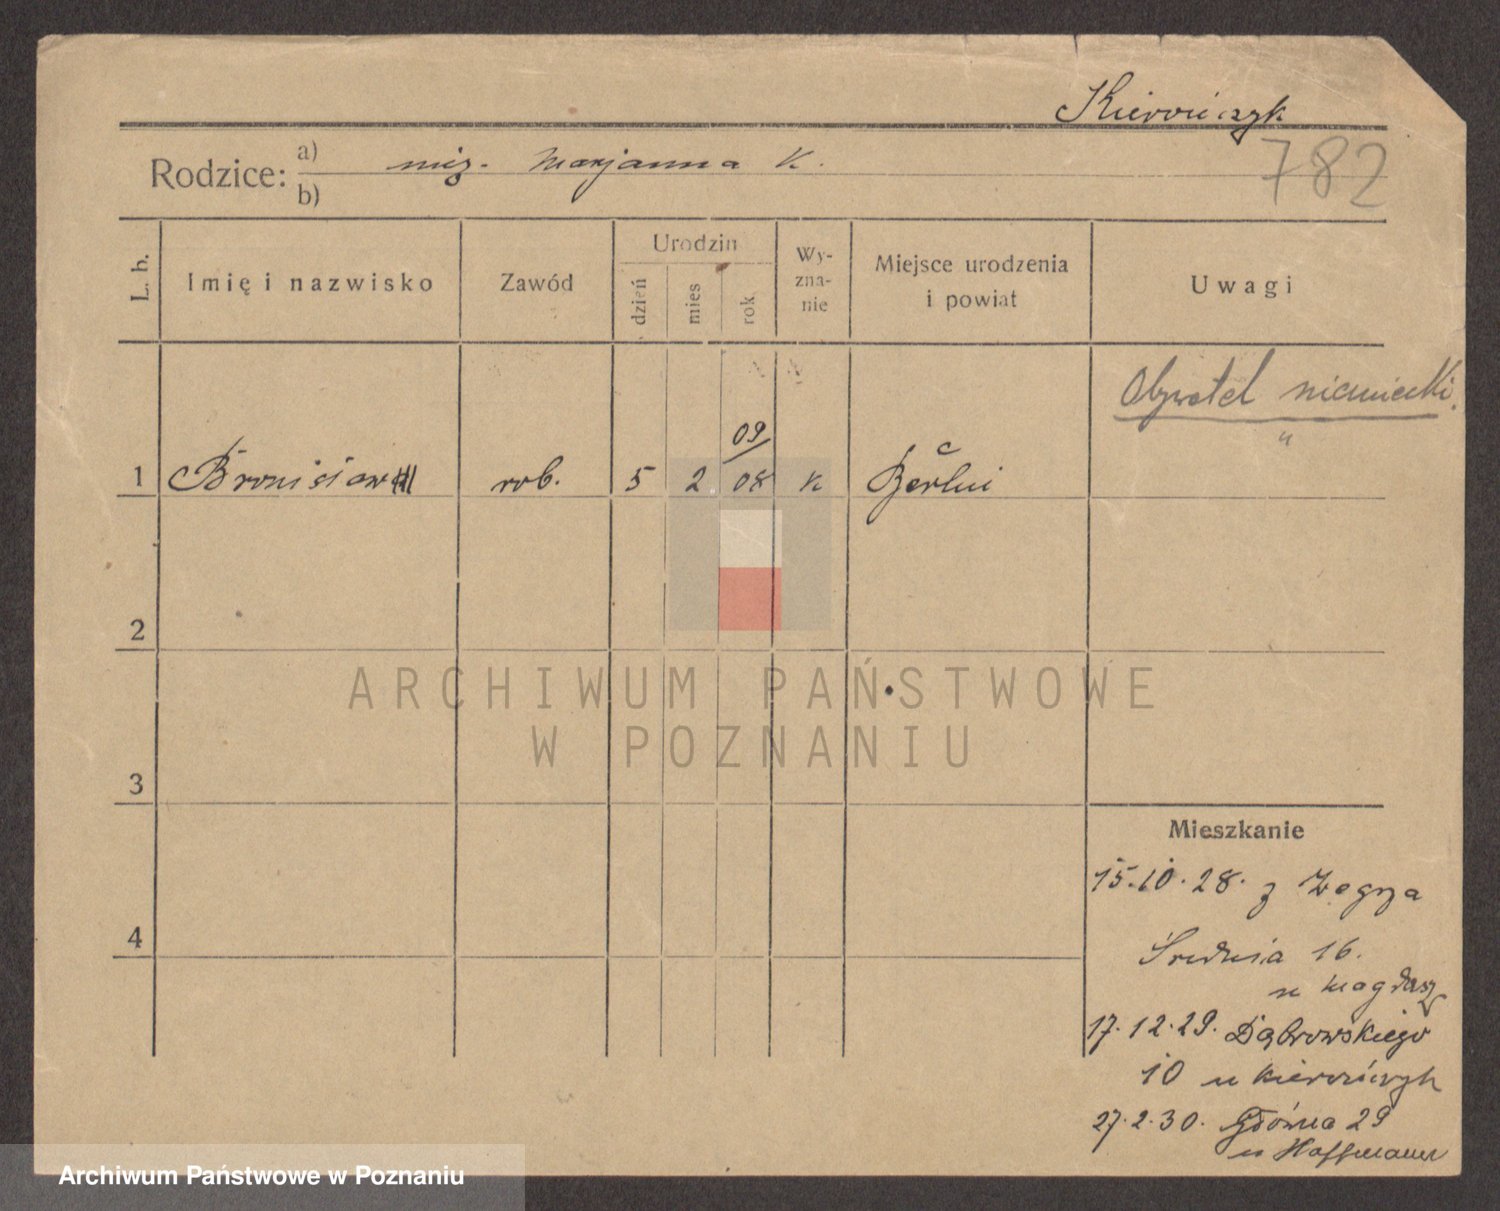 Kierończyk
782
Rodzice: a) niez. Marjanna K.
b)
L. b.
Imię i nazwisko
Zawód
Urodzin
dzień
mies
rok
Wy-
zna-
nie
Miejsce urodzenia
i powiat
Uwagi
Obywatel niemiecki.
"
09/
1 Bronisław rob. 5 2 08 K Berlin
2
3
4
Mieszkanie
15.10.28. z
Średnia 16.
u Magdasz
17.12.29. Dąbrowskiego
10 u Kierończyk
27.2.30. Główna 29
u Hoffmann
ARCHIWUM PAŃSTWOWE
W POZNANIU
Archiwum Państwowe w Poznaniu